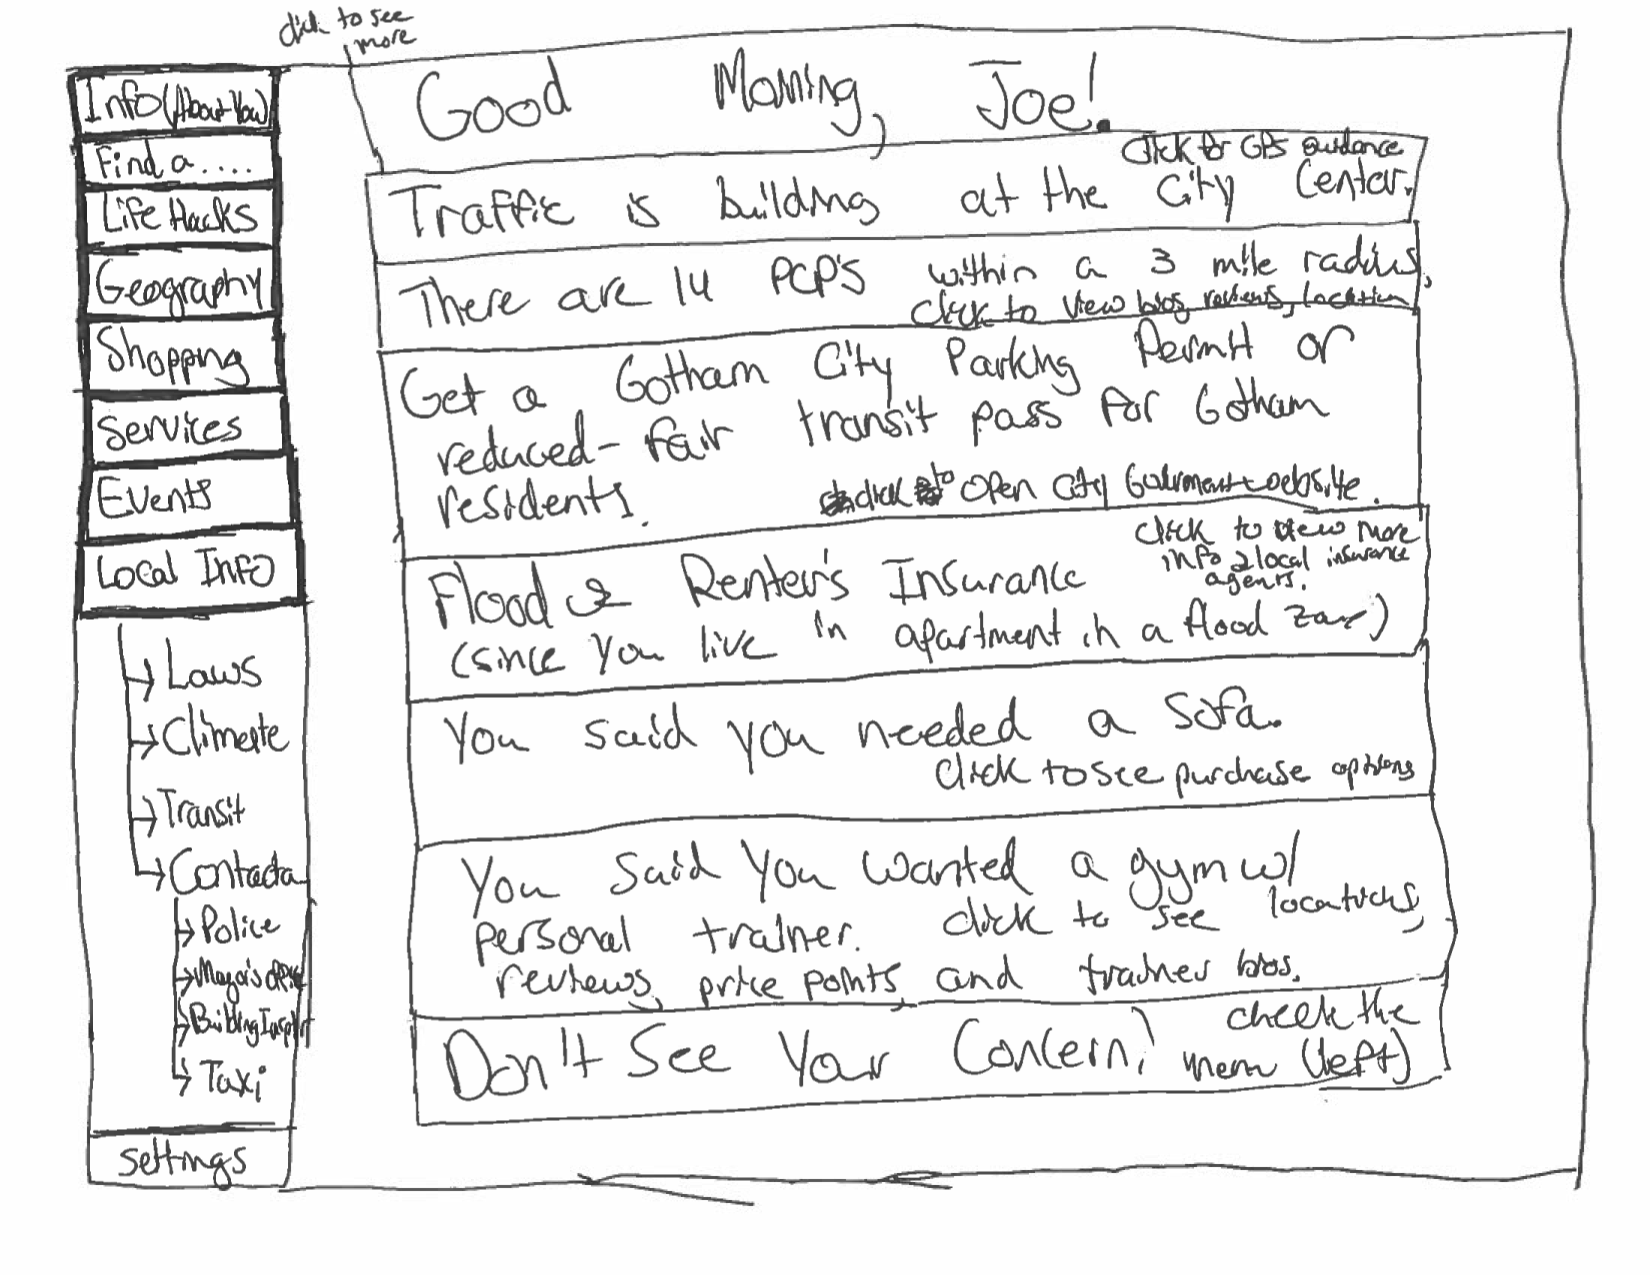 click to see
more
Info (About You)
Find a....
Life Hacks
Geography
Shopping
Services
Events
Local Info
Laws
Climate
Transit
Contacts
Police
Building
Taxi
settings
Good Morning, Joe!
Click for GPS guidance
Traffic is building at the City Center.
There are 14 PCP'S within a 3 mile radius,
click to view bios, reviews, location
Get a Gotham City Parking Permit or
reduced-fair transit pass for Gotham
residents.
click to open City Government website.
Flood & Renter's Insurance
click to view more
info & local insurance
agents.
(since you live in apartment in a flood zone)
You said you needed a sofa.
click to see purchase options
You said you wanted a gym w/
personal trainer. click to see locations,
reviews, price points, and trainer bios.
Don't See Your Concern? check the
menu (left)